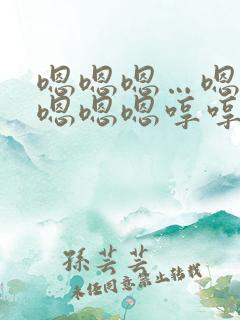 嗯嗯嗯…嗯
嗯嗯嗯哼哼
孫芸芸
未經同意禁止轉載